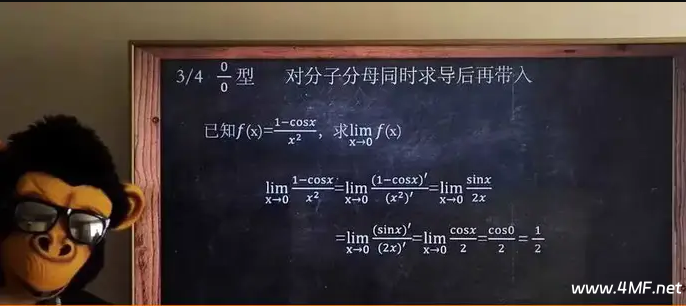 3/4 0/0 型 对分子分母同时求导后再带入
已知f(x)=(1−cosx)/x², 求lim x→0 f(x)
lim x→0 (1−cosx)/x² = lim x→0 (1−cosx)′/(x²)′ = lim x→0 sinx/2x
= lim x→0 (sinx)′/(2x)′ = lim x→0 cosx/2 = cos0/2 = 1/2
www.4MF.net